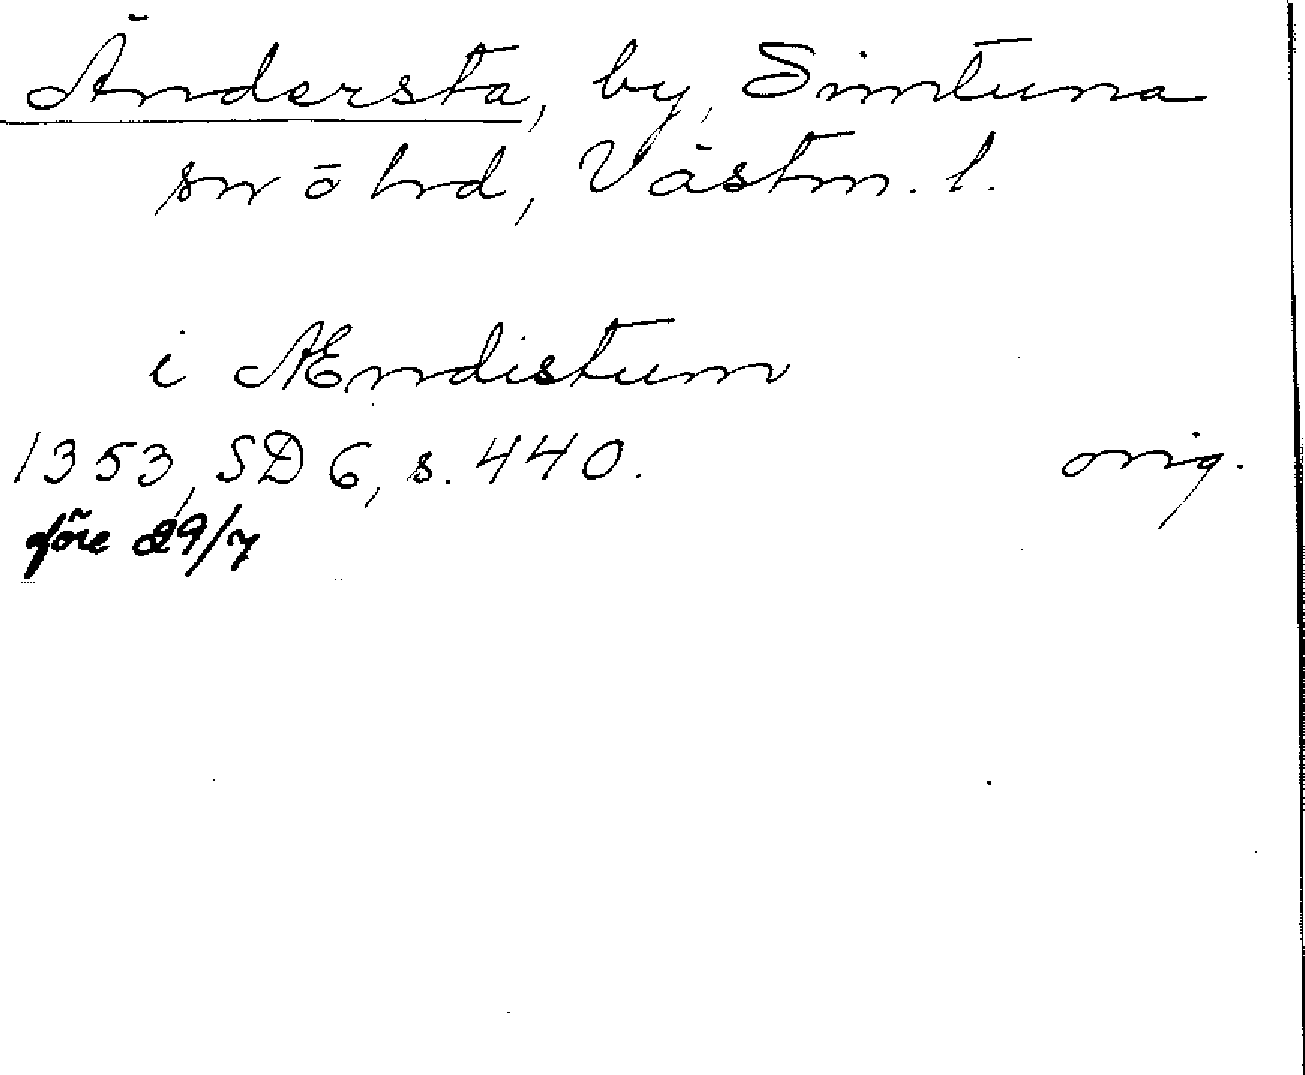 Ändersta, by, Simtuna
sn ö hd, Västm. l.
i Ændistum
1353, SD 6, s. 440. orig.
före 29/7